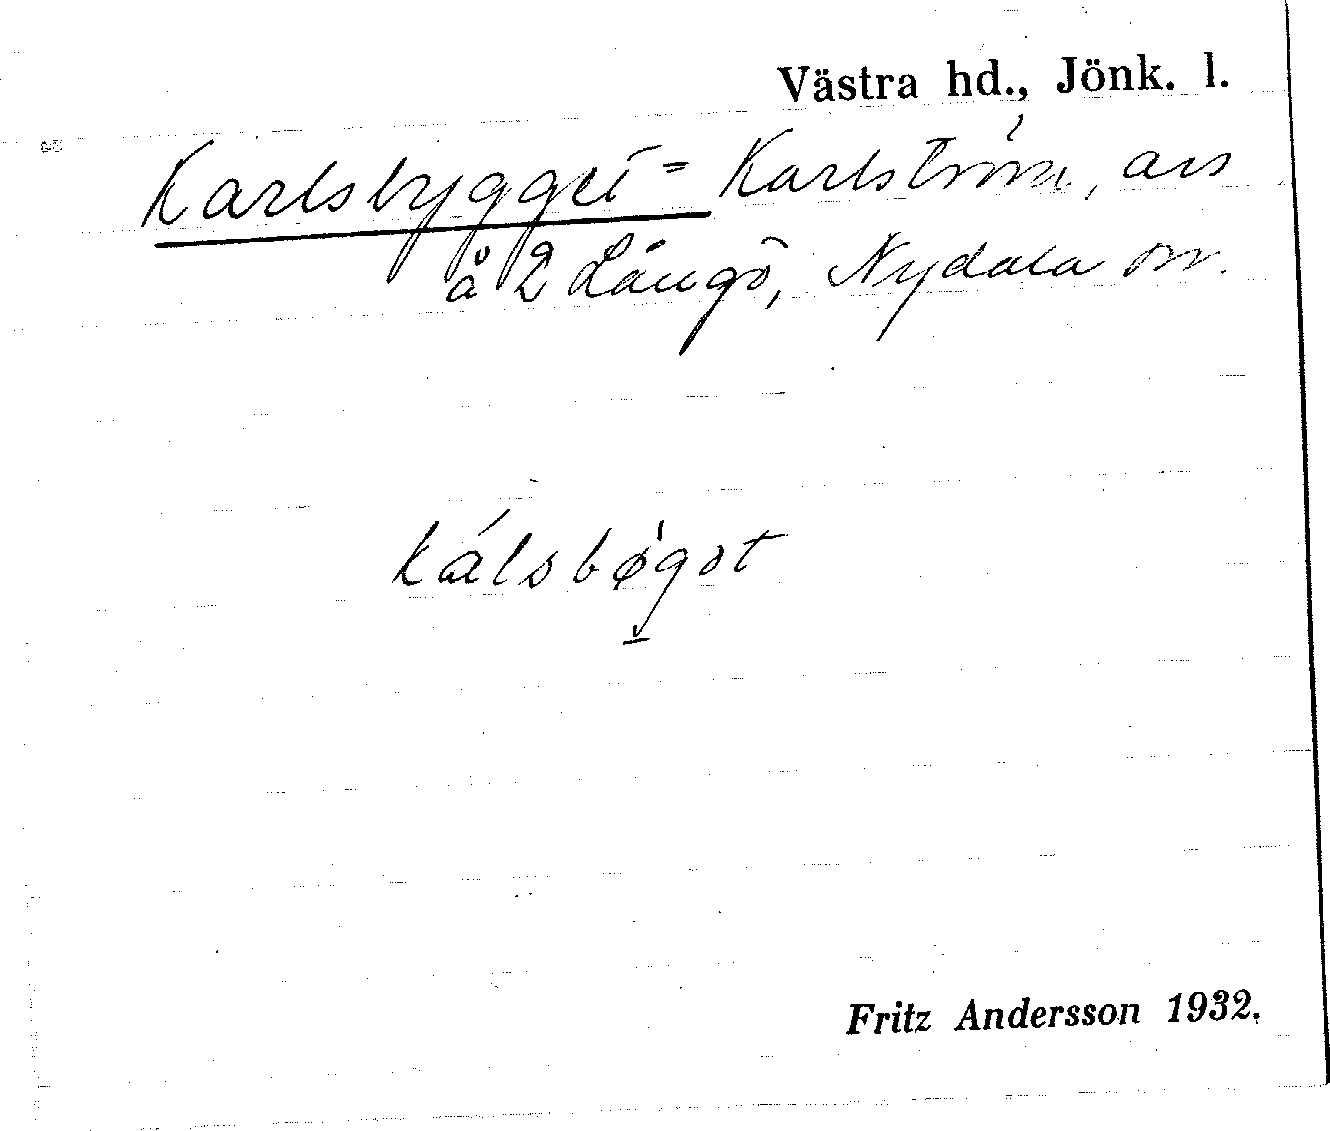 Västra hd., Jönk. l.
Karlsbygget = Karlström, avs
å 2 Långö, Nydala sn.
kálsbøgət
Fritz Andersson 1932.